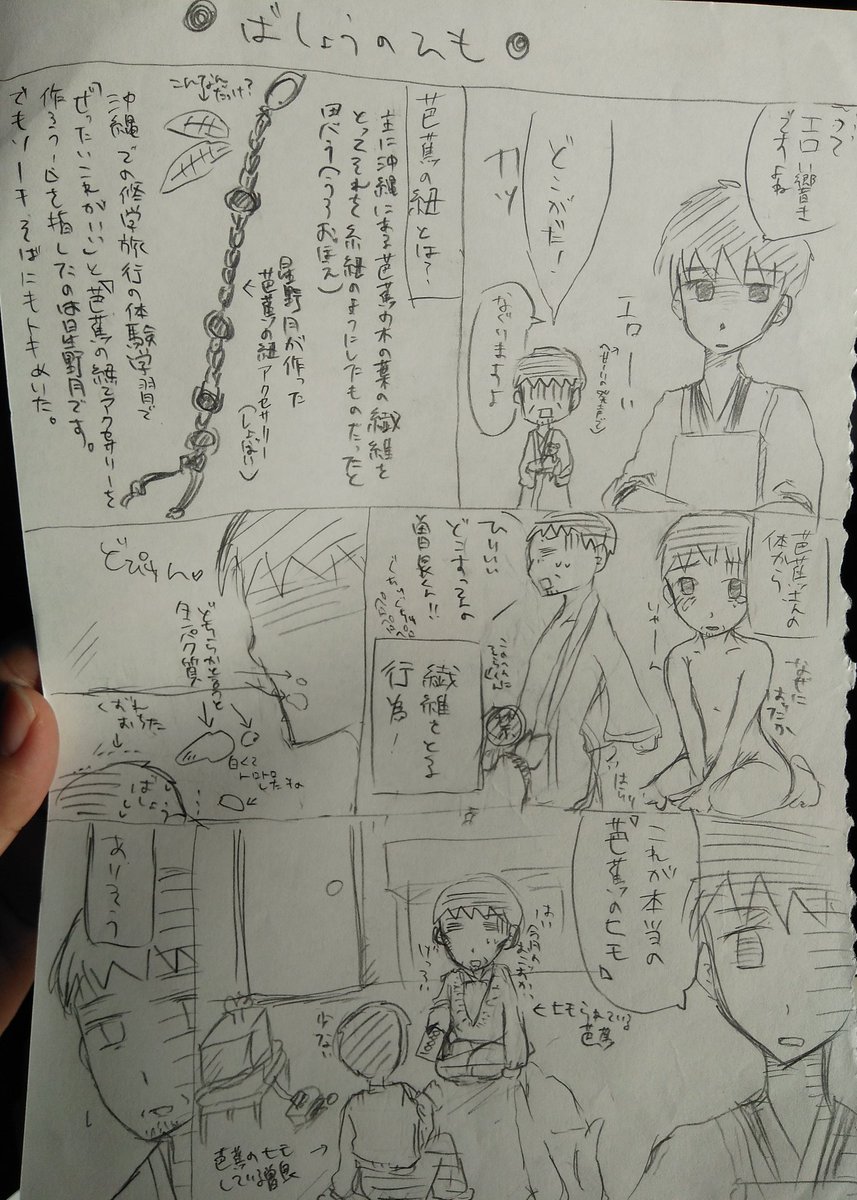 ばしょうのひも
って
エロい響き
ですよね
エローい
どこがだー!
カッ
なぐりますよ
芭蕉の紐とは?
主に沖縄にある芭蕉の木の葉の繊維を
とってそれを糸紐のようにしたものだったと
思う(うろおぼえ)
星野月が作った
芭蕉の紐アクセサリー
(しょっぱい)
こんなん
だっけ?
沖縄での修学旅行の体験学習で
「ぜったいこれがいい」と「芭蕉の紐でアクセサリーを
作ろうっ」を指したのは星野月です。
でもソーキそばにもトキめいた。
芭蕉さんの
体から
いやーん
なぜに
ひいいい
どうすってんの
曽良くん!!
繊維をとる
行為!
禁
はらり
どぴゅん
どちらかと言うと
タンパク質
白くて
トロトロ
したもの
ばしょう
これが本当の
『芭蕉のヒモ』
はい
今月の
おこづかい
げっそ
←ヒモられている
芭蕉
少ない
芭蕉のヒモ
している曽良
ありそう